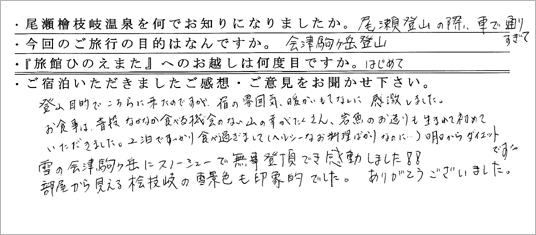 ・尾瀬檜枝岐温泉を何でお知りになりましたか。尾瀬登山の際に車で通りすぎて
・今回のご旅行の目的はなんですか。会津駒ヶ岳登山
・『旅館ひのえまた』へのお越しは何度目ですか。はじめて
・ご宿泊いただきましたご感想・ご意見をお聞かせ下さい。
登山目的でこちらに来たのですが、宿の雰囲気、暖かいもてなしに感激しました。
お食事は、普段なかなか食べる機会のない山の幸がたくさん、岩魚のお造りも生まれて初めて
いただきました。2泊ですっかり食べ過ぎまして(ヘルシーなお料理ばかりなのに…)明日からダイエットです
雪の会津駒ヶ岳にスノーシューで無事登頂でき感動しました!!
部屋から見える桧枝岐の雪景色も印象的でした。ありがとうございました。